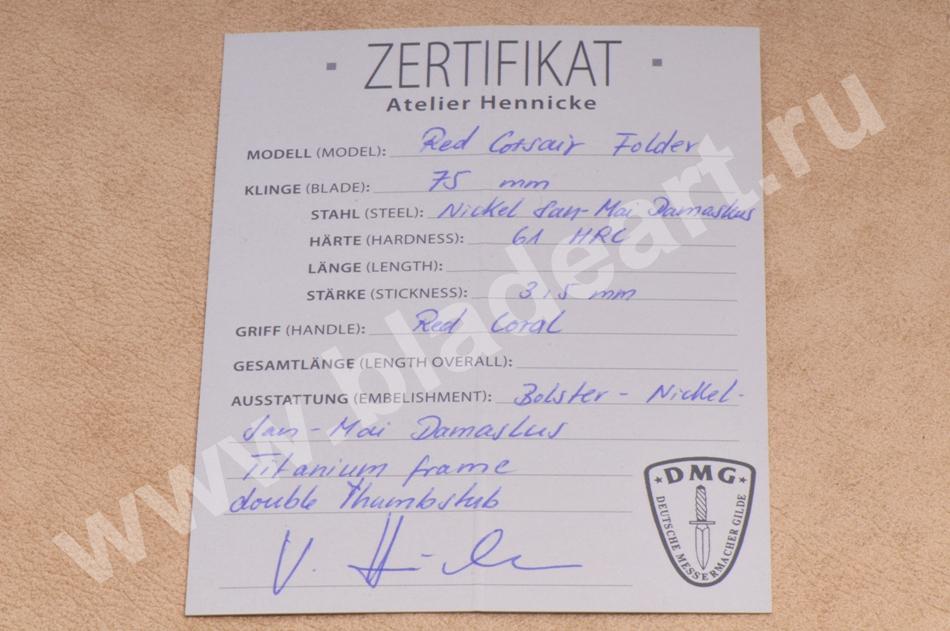 - ZERTIFIKAT -
Atelier Hennicke
MODELL (MODEL): Red Corsair Folder
KLINGE (BLADE): 75 mm
STAHL (STEEL): Nickel San-Mai Damaskus
HÄRTE (HARDNESS): 61 HRC
LÄNGE (LENGTH):
STÄRKE (STICKNESS): 3,5 mm
GRIFF (HANDLE): Red Coral
GESAMTLÄNGE (LENGTH OVERALL):
AUSSTATTUNG (EMBELISHMENT): Bolster - Nickel-
San-Mai Damaskus
Titanium frame
double Thumbstub
DMG
DEUTSCHE MESSERMACHER GILDE
www.bladeart.ru